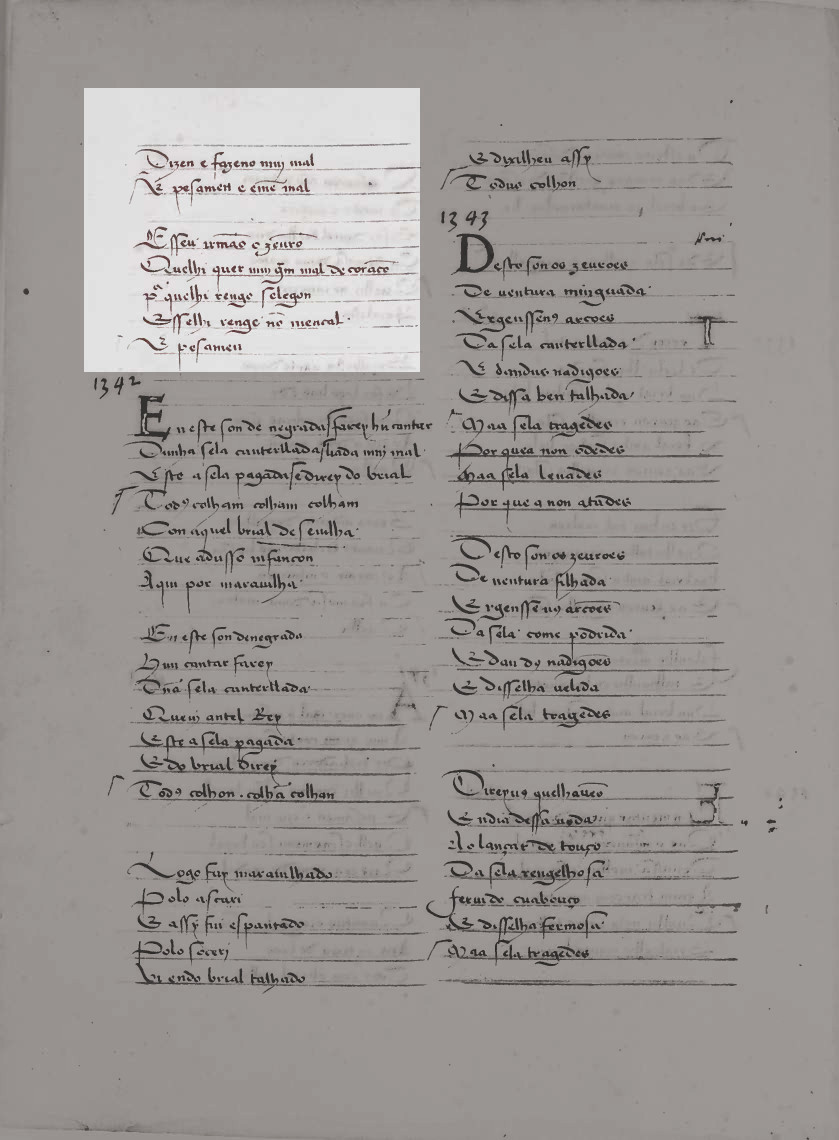 Dizen e fazeno muj mal
E pesamen e eme mal
Esseu irmão e zeuro
Quelhi quer muj gm mal de coraço
pa quelhi rengo selegon
Esselhi renge nō mencal
E pesamen
1342
En este son de negrada farey hũ cantar
Dunha sela canterllada liada muj mal
Este a sela pagada e direy do brial
Todꝰ colham colham colham
Con aquel brial de seuilha
Que adusso infançon
Aqui por marauilha
En este son de negrada
Hun cantar farey
Dña sela canterllada
Quem antel Rey
Este a sela pagada
E do brial direy
Todꝰ colhon . colhã colhan
Logo fuy marauilhado
Polo ascari
E assy fui espantado
Polo soceri
Vi endo brial talhado
E dixilheu assy
Todus colhon
1343
Desto son os zeuroes
De uentura minguada
Ergenssenꝰ arcoes
Da sela canterllada
E dandus nadigoes
E dissa ben talhada
Maa sela tragedes
Por quea non odedes
Maa sela leuades
Por que a non atades
Desto son os zeuroes
De uentura filhada
Ergenssē uꝰ arcoes
Da sela come podrida
E dan dꝰ nadigoēs
E disselha uelida
Maa sela tragedes
Direyuꝰ quelhaueo
En dia dessa uoda
Ao lançar de touço
Da sela rengelhosa
feruido cuabouço
E disselha fermosa
Maa sela tragedes